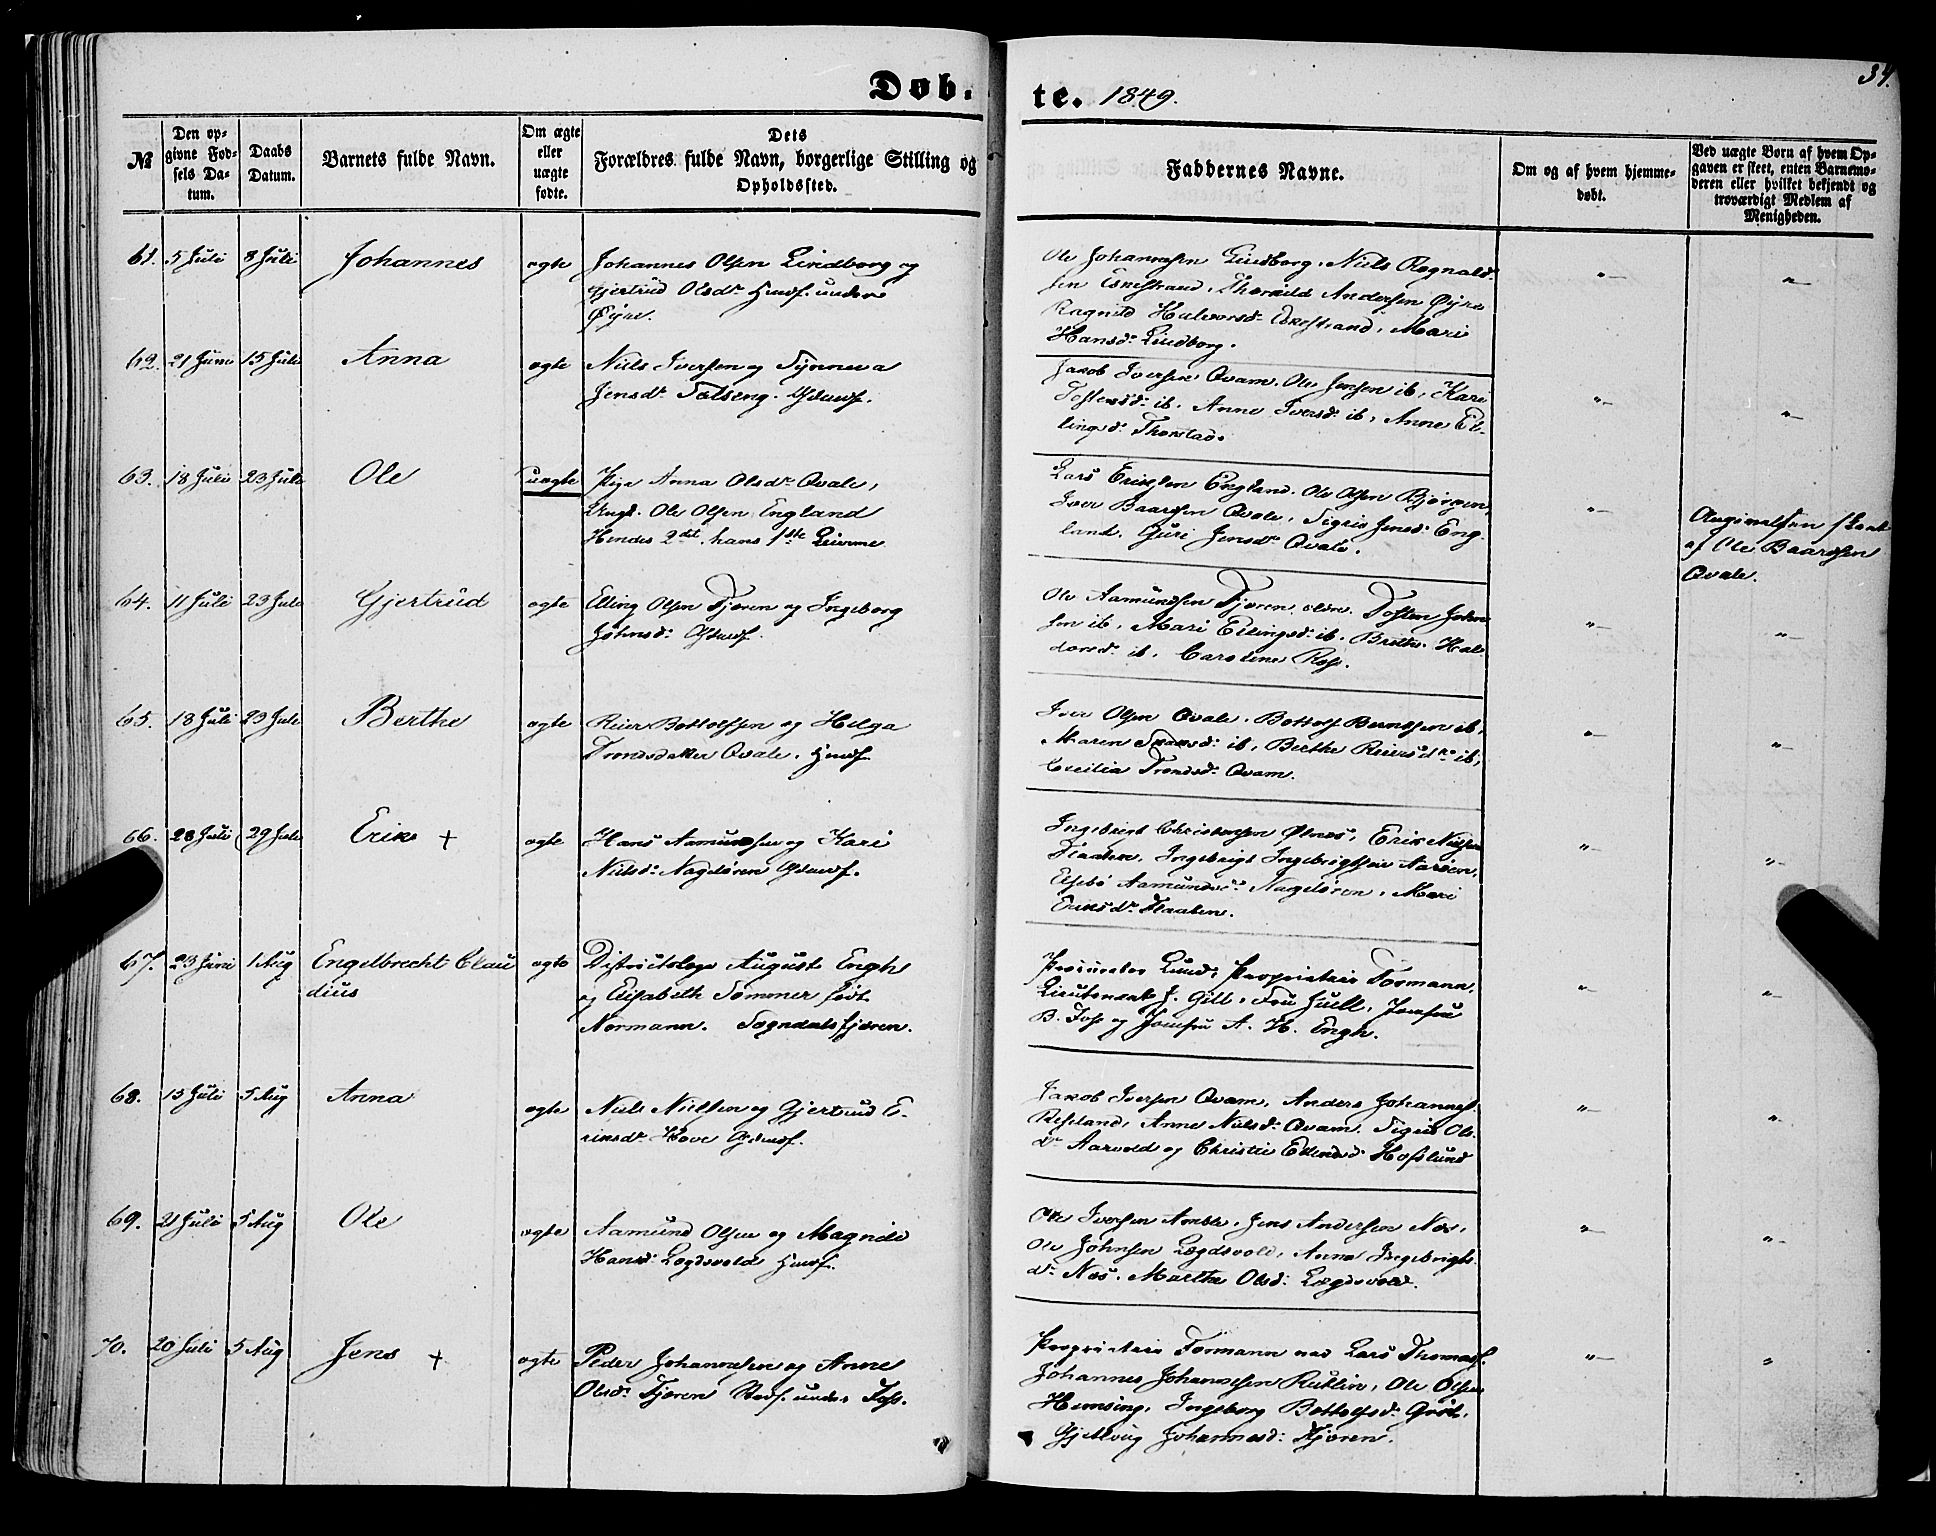 Døb-
te. 1849.
34.
No
Den op-
givne Fød-
sels Da-
tum.
Daabs
Datum.
Barnets fulde Navn.
Om ægte
eller
uægte
fødte.
Dets
Forældres fulde Navn, borgerlige Stilling og
Opholdssted.
Faddernes Navne.
Om og af hvem hjemme-
døbt.
Ved uægte Børn af hvem Op-
gaven er skeet, enten Barnemo-
deren eller hvilket bekjendt og
troværdigt Medlem af
Menigheden.
61. 5 Juli 8 Juli Johannes ægte
Johannes Olsen Lindborg og
Gjertrud Olsdr. Husf. under
Øyre.
Ole Johannesen Lindborg. Niels Rognald-
sen Eskestrand, Andersen Øyre
Ragnild Halvorsdr. Eskestrand, Mari
Hansdr. Lindborg.
62. 21 Juni 15 Juli Anna ægte
Niels Iversen og Synneva
Jensdr. Gdmdf.
Jakob Iversen Qvam. Ole Jensen ib, Kari
ib. Anne Iversdr. ib, Anne El-
lingsdr. Thorstad.
63. 18 Juli 23 Juli Ole uægte
Pige Anna Olsdr. Qvale,
Ungk. Ole Olsen England
Hendes 2det. hans 1ste Leierm.
Lars Eriksen England. Ole Olsen Bjørgen,
Iver Baardsen Qvale, Sigrid Jensdr. Eng-
land, Guri Jensdr. Qvale.
Angivelsen skeet
af Ole Baardsen
Qvale.
64. 11 Juli 23 Juli Gjertrud ægte
Elling Olsen Fjæren og Ingeborg
Johnsdr. Gdmdf.
Ole Aamundsen Fjæren, ældre. Tosten John-
sen ib, Mari Ellingsdr. ib. Brithe Hal-
dorsdr. ib, Caroline Foss.
65. 18 Juli 23 Juli Berthe ægte
Reier Bottolfsen og Helga
Trondsdatter Qvale. Husf.
Iver Olsen Qvale. Bottolf Berntsen ib,
Maren ib, Berthe Reiersdr. ib,
Cecilia Trondsdr. Qvam.
66. 28 Juli 29 Juli Erik + ægte
Hans Aamundsen og Kari
Nielsdr. Nagløren Gdmdf.
Ingebrigt Christensen Ølnes, Erik Nielsen
Flaaten, Ingebrigt Ingebrigtsen Aarøen,
Elsebe Aamundsdr. Nagløren, Mari
Eriksdr. Flaaten.
67. 23 Juni 1 Aug Engelbrecht Clau
dius ægte
Districtslæge August Engh
og Elisabeth Sommer født
Normann. Sogndalsfjæren.
Procurator Lund, Proprietair Formann,
Lieutenant J. Gill, Fru Juell, Jomfru
B. Foss og Jomfru A. H. Engh.
68. 15 Juli 5 Aug Anna ægte
Niels Nielsen og Gjertrud E-
riksdr. Hove Gdmdf.
Jakob Iversen Qvam, Anders Johannes.
Anne Nielsdr. Qvam. Sigrid Ols-
dr. og Christie Hofslund
69. 21 Juli 5 Aug Ole ægte
Aamund Olsen og Magnild
Hansdr. Lægdsvold Husf.
Ole Iversen Amble, Jens Andersen Næs,
Ole Johnsen Lægdsvold, Anna Ingebrigts-
dr. Næs. Marthe Olsdr. Lægdsvold.
70. 20 Juli 5 Aug Jens + ægte
Peder Johannesen og Anne
Olsdr. Fjæren under Foss.
Proprietair Formann ved Lars Thomass.
Johannes Johannesen Rutlin, Ole Olsen
Ingeborg Bottolfsdr.
Johannesdr. Fjæren.